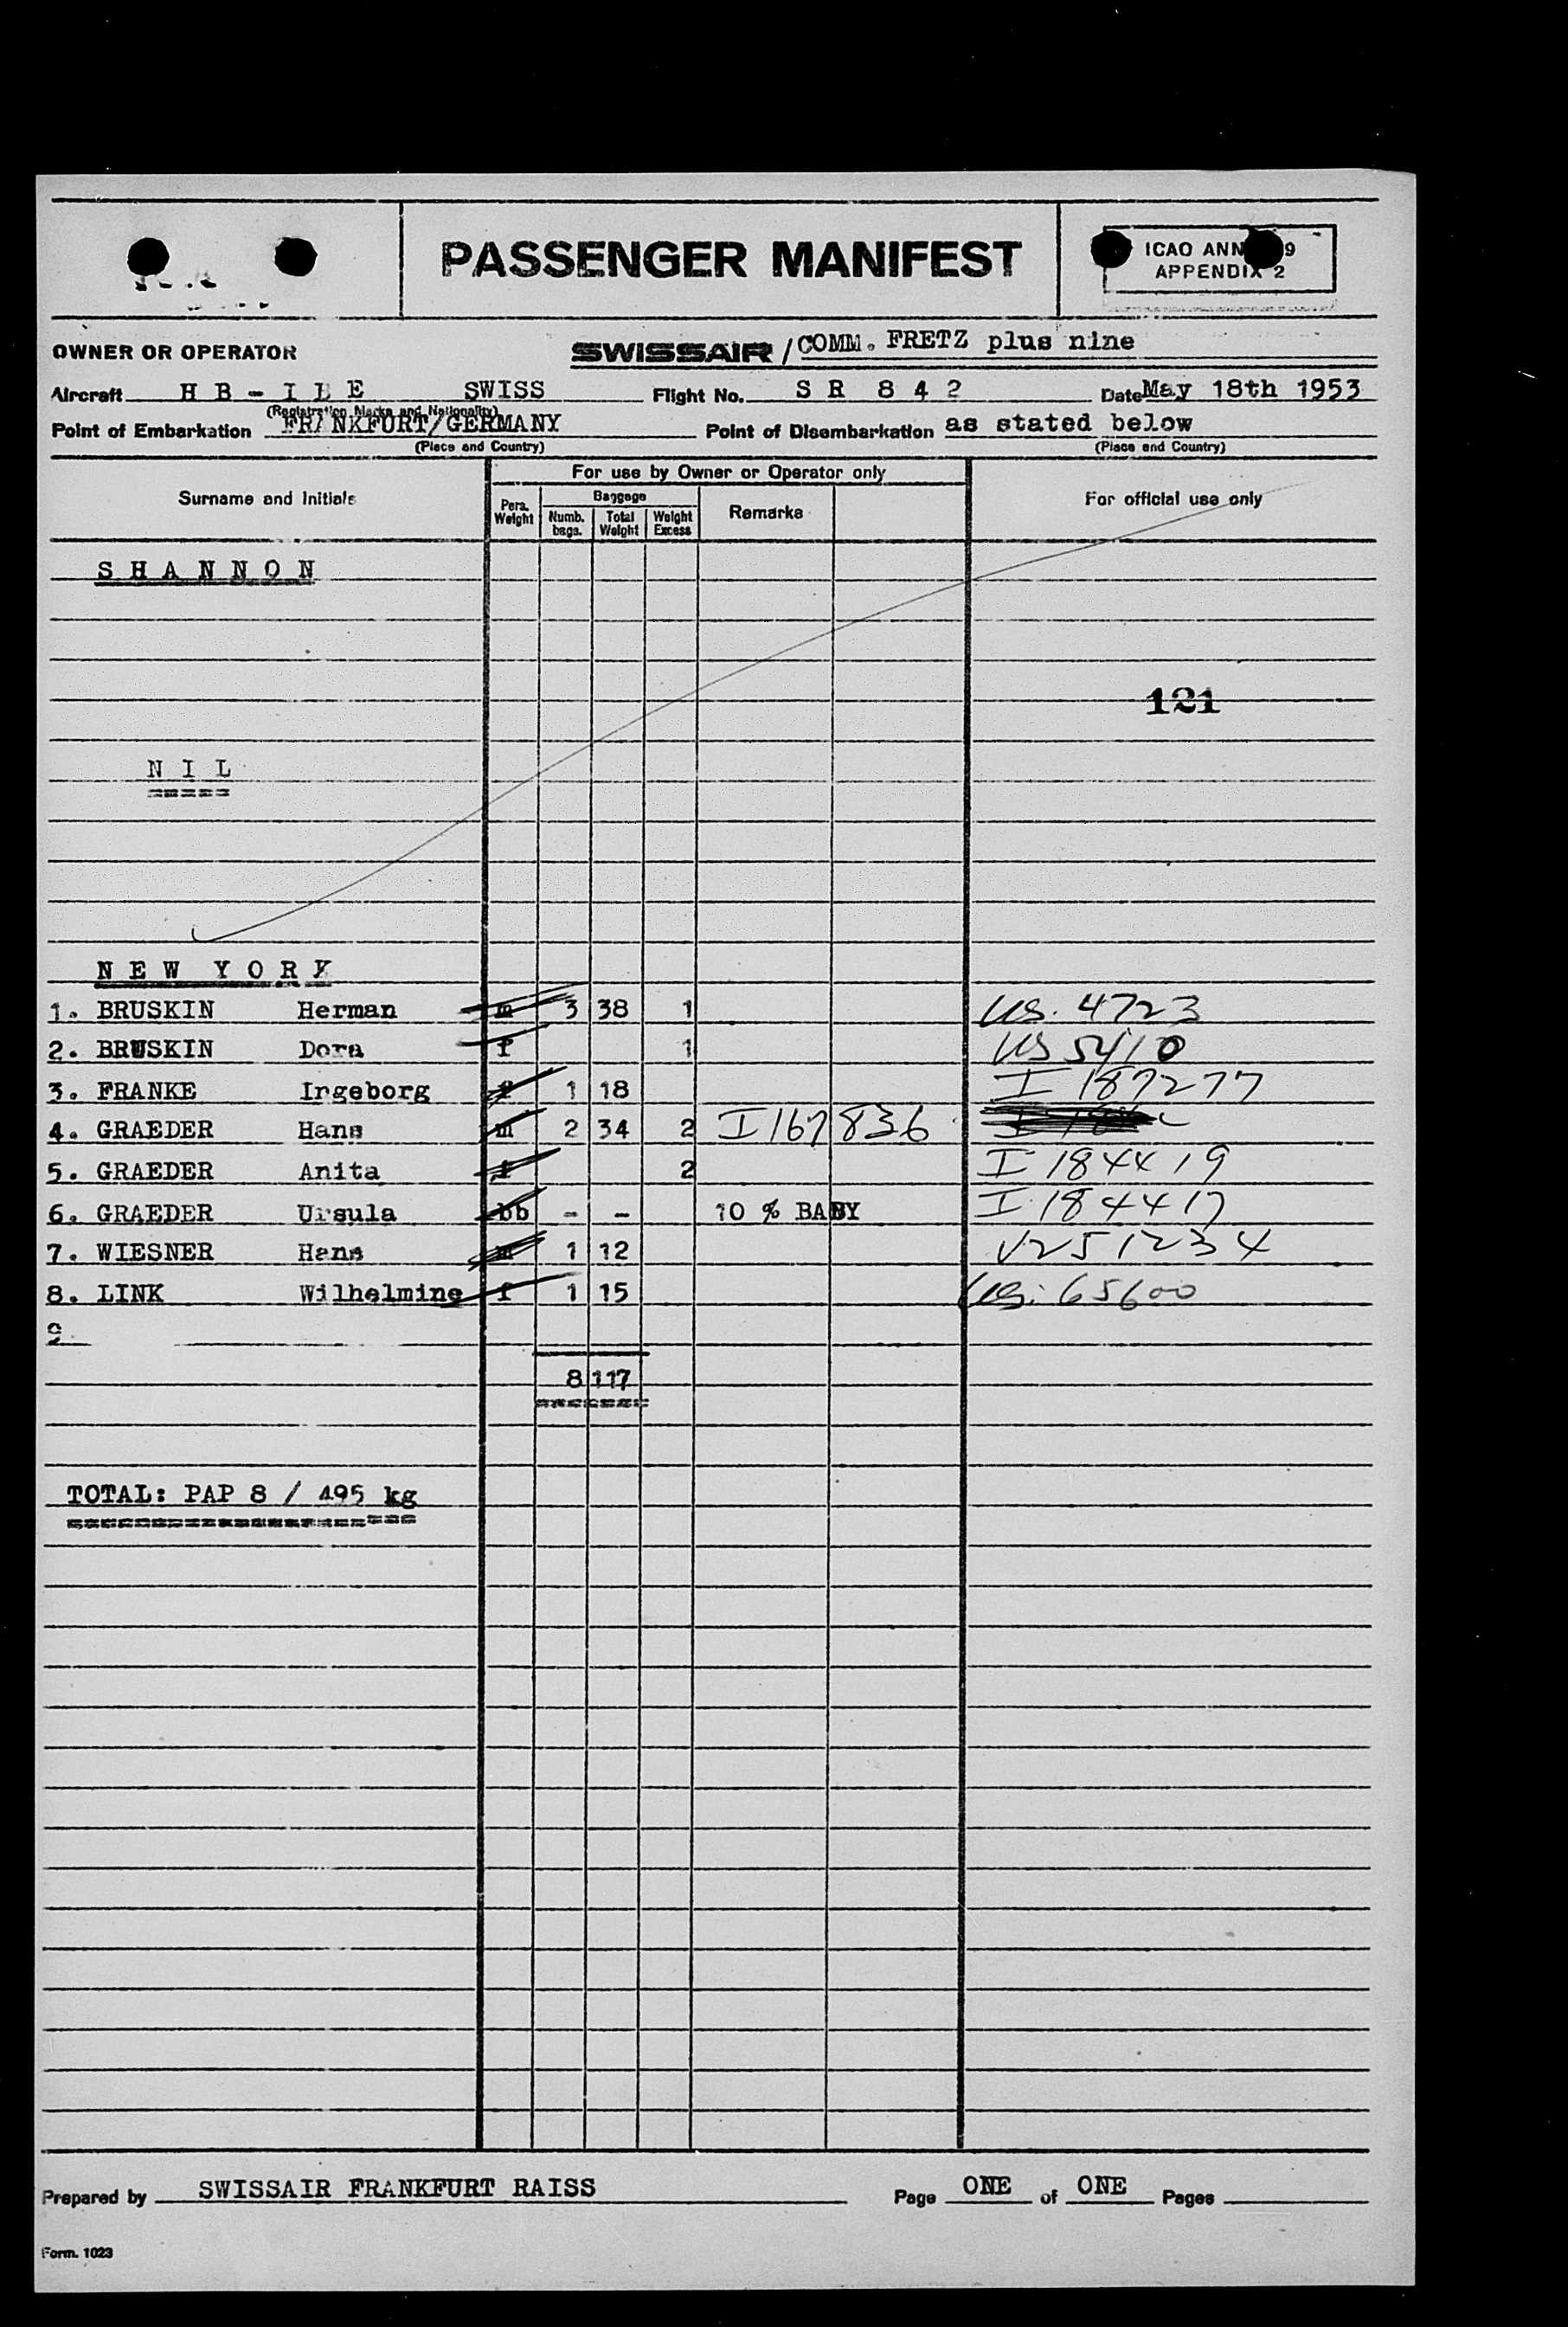 PASSENGER MANIFEST
ICAO ANN 9
APPENDIX 2
OWNER OR OPERATOR SWISSAIR / COMM. FRETZ plus nine
Aircraft H B - I L E SWISS Flight No. S R 8 4 2 Date May 18th 1953
(Registration Marks and Nationality)
Point of Embarkation FRANKFURT/GERMANY Point of Disembarkation as stated below
(Place and Country) (Place and Country)
For use by Owner or Operator only
Surname and Initials Pers. Weight Baggage Numb. bags. Total Weight Weight Excess Remarks For official use only
S H A N N O N
121
N I L
=====
N E W Y O R K
1. BRUSKIN Herman m 3 38 1 US. 4723
2. BRUSKIN Dora f 1 US 5410
3. FRANKE Ingeborg f 1 18 I 187277
4. GRAEDER Hans m 2 34 2 I167836
5. GRAEDER Anita f 2 I 184419
6. GRAEDER Ursula bb - - 10 % BABY I 184417
7. WIESNER Hans m 1 12 V251234
8. LINK Wilhelmine f 1 15 US. 65600
9
8 117
=======
TOTAL: PAP 8 / 495 kg
=====================
Prepared by SWISSAIR FRANKFURT RAISS Page ONE of ONE Pages
Form. 1023